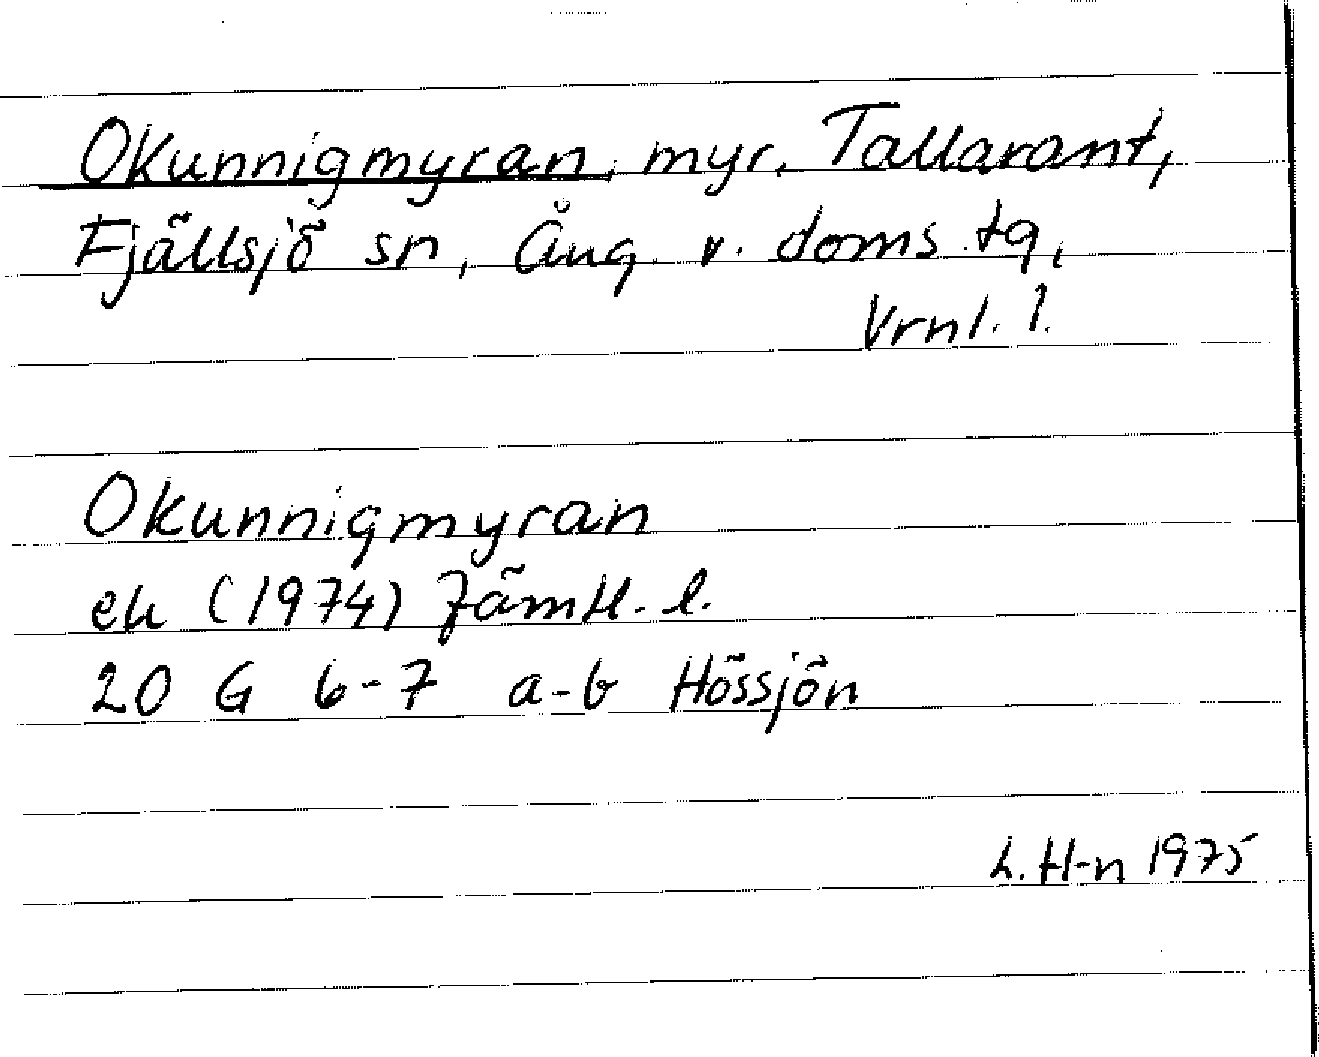 Okunnigmyran, myr, Tallarant,
Fjällsjö sn, Ång. v. doms.tg,
Vrnl. l.
Okunnigmyran
ek (1974) Jämtl. l.
20 G 6-7 a-b Hössjön
L. H-n 1975